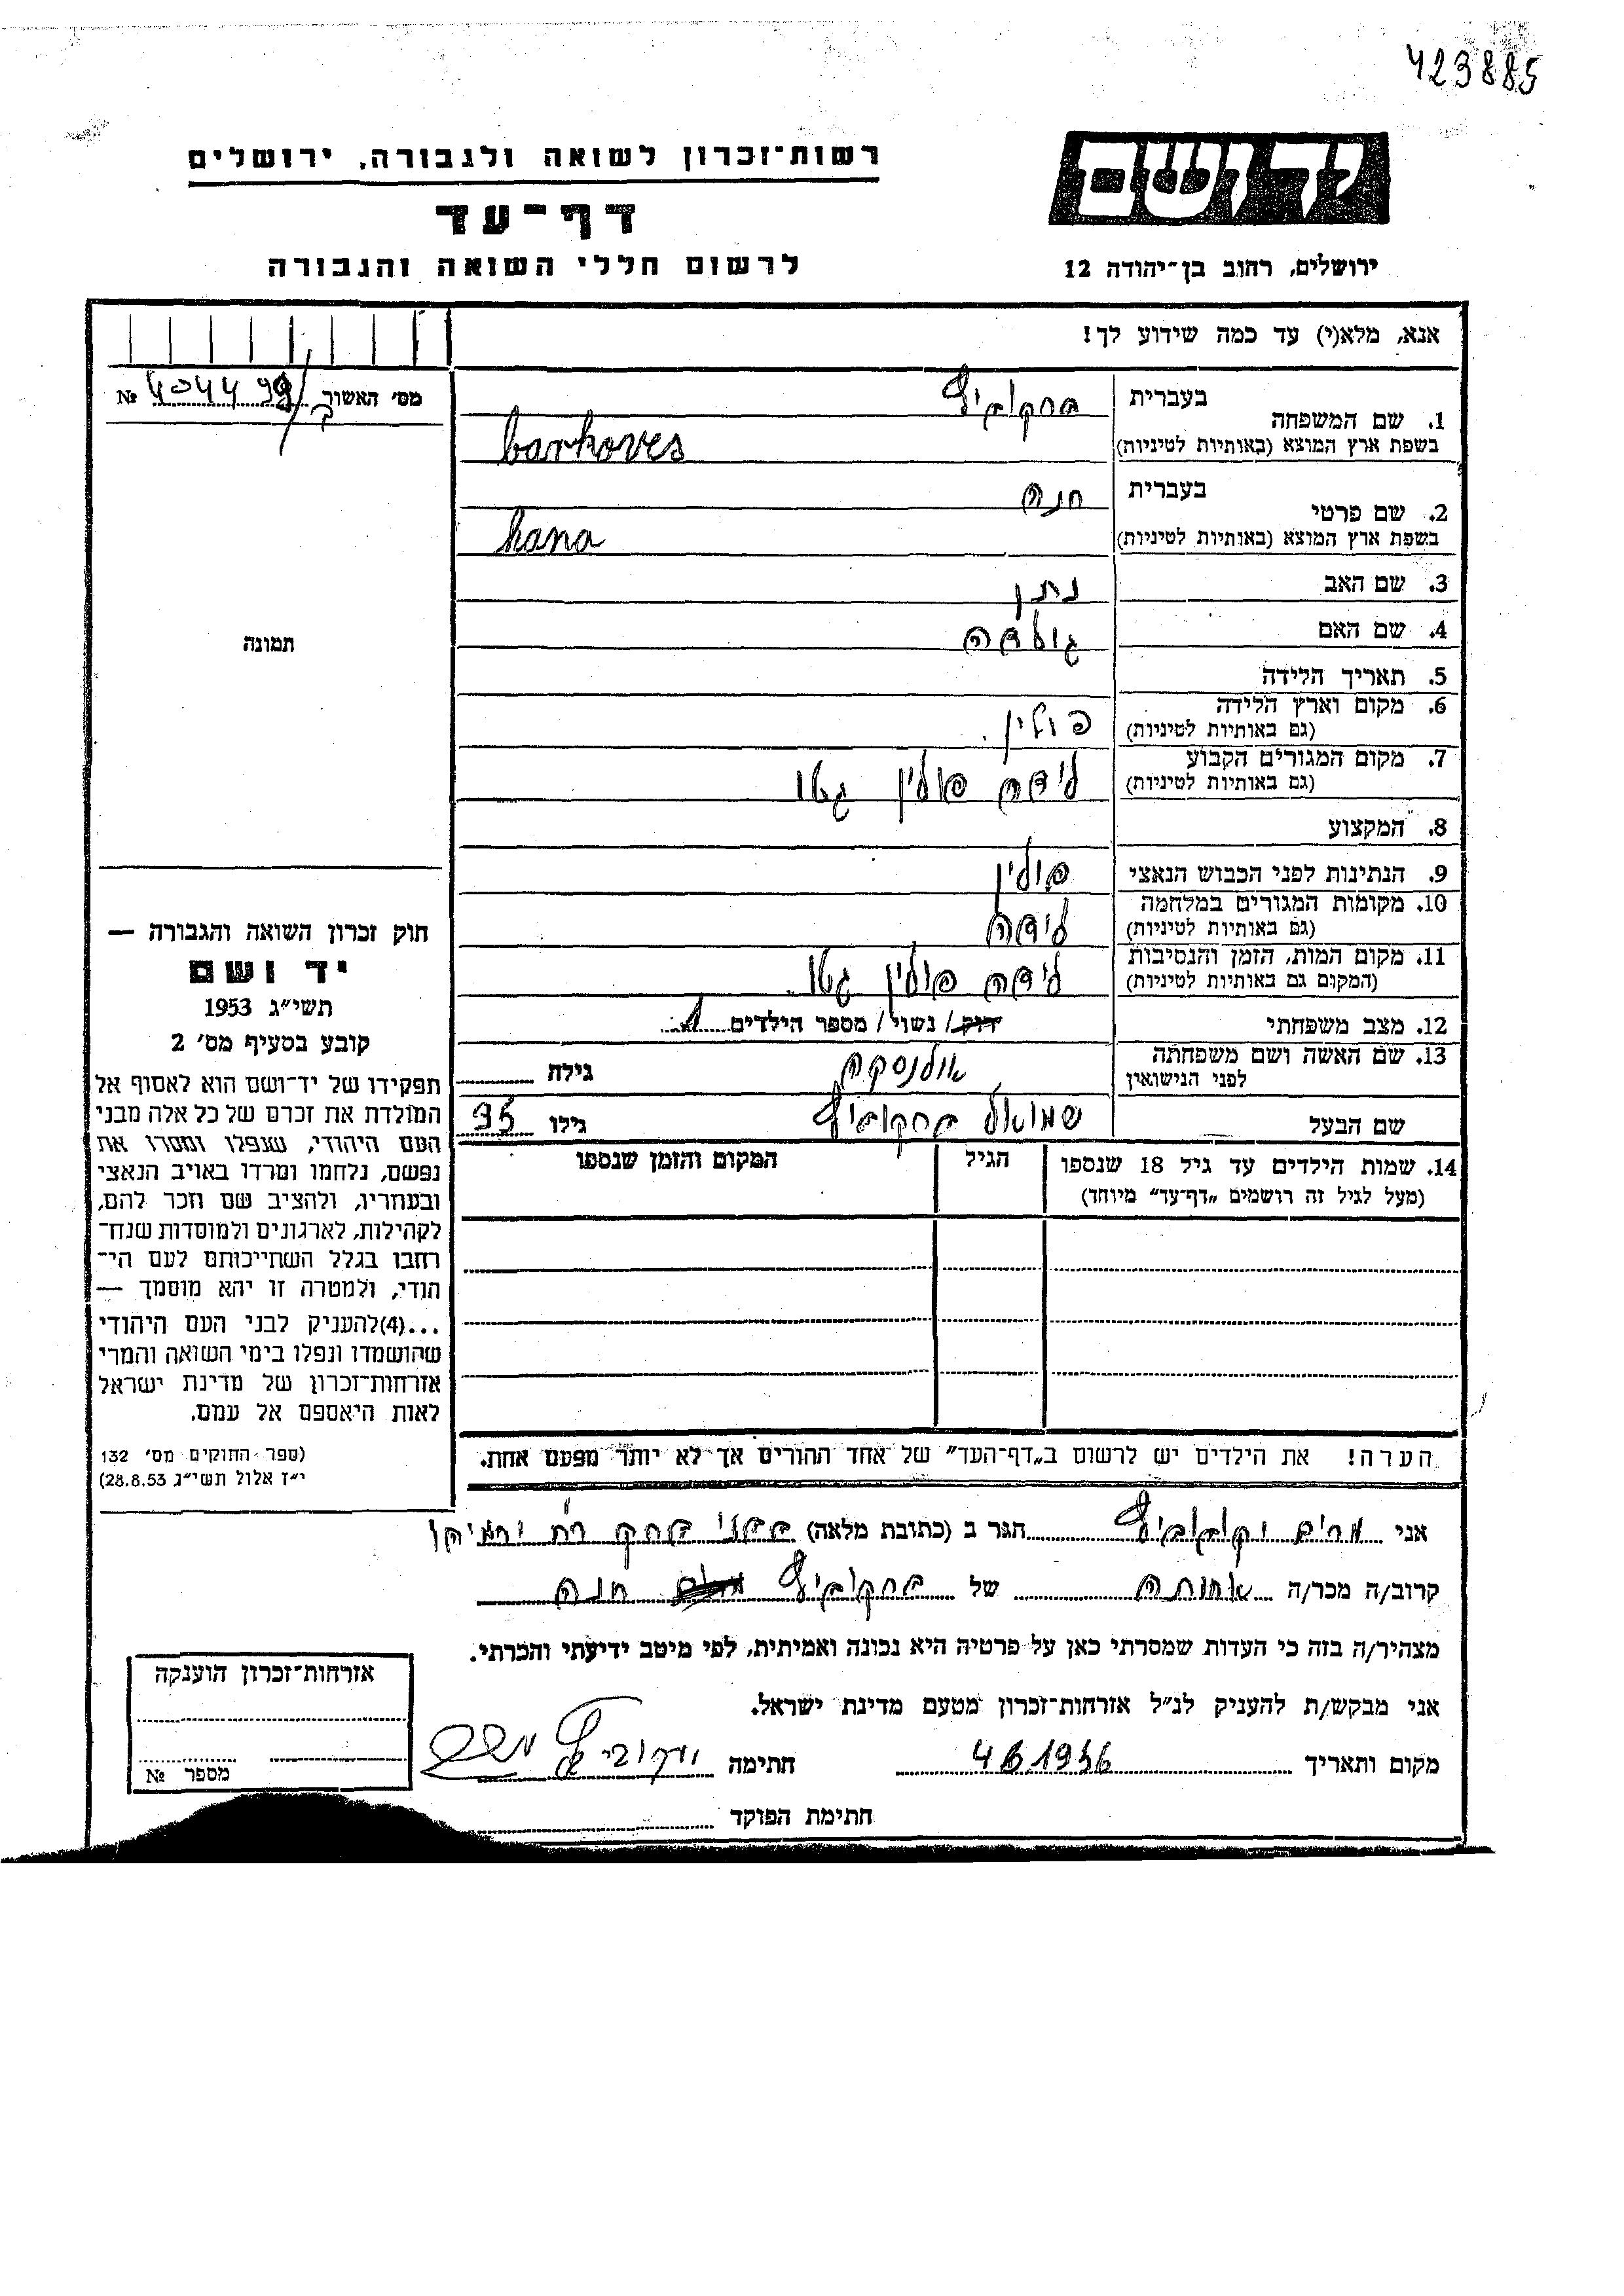 423885
רשות־זכרון לשואה ולגבורה, ירושלים
דף־עד
לרשום חללי השואה והגבורה
יד ושם
ירושלים, רחוב בן־יהודה 12
אנא, מלא(י) עד כמה שידוע לך!
מס׳ האשור №
1. שם המשפחה בעברית ברקוביץ
בשפת ארץ המוצא (באותיות לטיניות) barkoves
2. שם פרטי בעברית חנה
בשפת ארץ המוצא (באותיות לטיניות) hana
3. שם האב נתן
4. שם האם גולדה
5. תאריך הלידה
6. מקום וארץ הלידה פולין
(גם באותיות לטיניות)
7. מקום המגורים הקבוע לידה פולין גטו
(גם באותיות לטיניות)
8. המקצוע
9. הנתינות לפני הכבוש הנאצי פולין
10. מקומות המגורים במלחמה לידה
(גם באותיות לטיניות)
11. מקום המות, הזמן והנסיבות לידה פולין גטו
(המקום גם באותיות לטיניות)
12. מצב משפחתי רווק / נשוי / מספר הילדים 1
13. שם האשה ושם משפחתה אולנסקה גילה
לפני הנישואין
שם הבעל שמואל ברקוביץ גילו 35
14. שמות הילדים עד גיל 18 שנספו הגיל המקום והזמן שנספו
(מעל לגיל זה רושמים „דף־עד״ מיוחד)
הערה! את הילדים יש לרשום ב„דף־העד״ של אחד ההורים אך לא יותר מפעם אחת.
תמונה
חוק זכרון השואה והגבורה —
יד ושם
תשי״ג 1953
קובע בסעיף מס׳ 2
תפקידו של יד־ושם הוא לאסוף אל
המולדת את זכרם של כל אלה מבני
העם היהודי, שנפלו ומסרו את
נפשם, נלחמו ומרדו באויב הנאצי
ובעוזריו, ולהציב שם וזכר להם,
לקהילות, לארגונים ולמוסדות שנח־
רחבו בגלל השתייכותם לעם הי־
הודי, ולמטרה זו יהא מוסמך —
...(4)להעניק לבני העם היהודי
שהושמדו ונפלו בימי השואה והמרי
אזרחות־זכרון של מדינת ישראל
לאות היאספם אל עמם.
(ספר החוקים מס׳ 132
י״ז אלול תשי״ג 28.8.53)
אני מרים יעקוביץ הגר ב (כתובת מלאה)
קרוב/ה מכר/ה אחותה של ברקוביץ חנה
מצהיר/ה בזה כי העדות שמסרתי כאן על פרטיה היא נכונה ואמיתית, לפי מיטב ידיעתי והכרתי.
אני מבקש/ת להעניק לנ״ל אזרחות־זכרון מטעם מדינת ישראל.
מקום ותאריך 4 6 1956 חתימה
חתימת הפוקד
אזרחות־זכרון הוענקה
מספר №